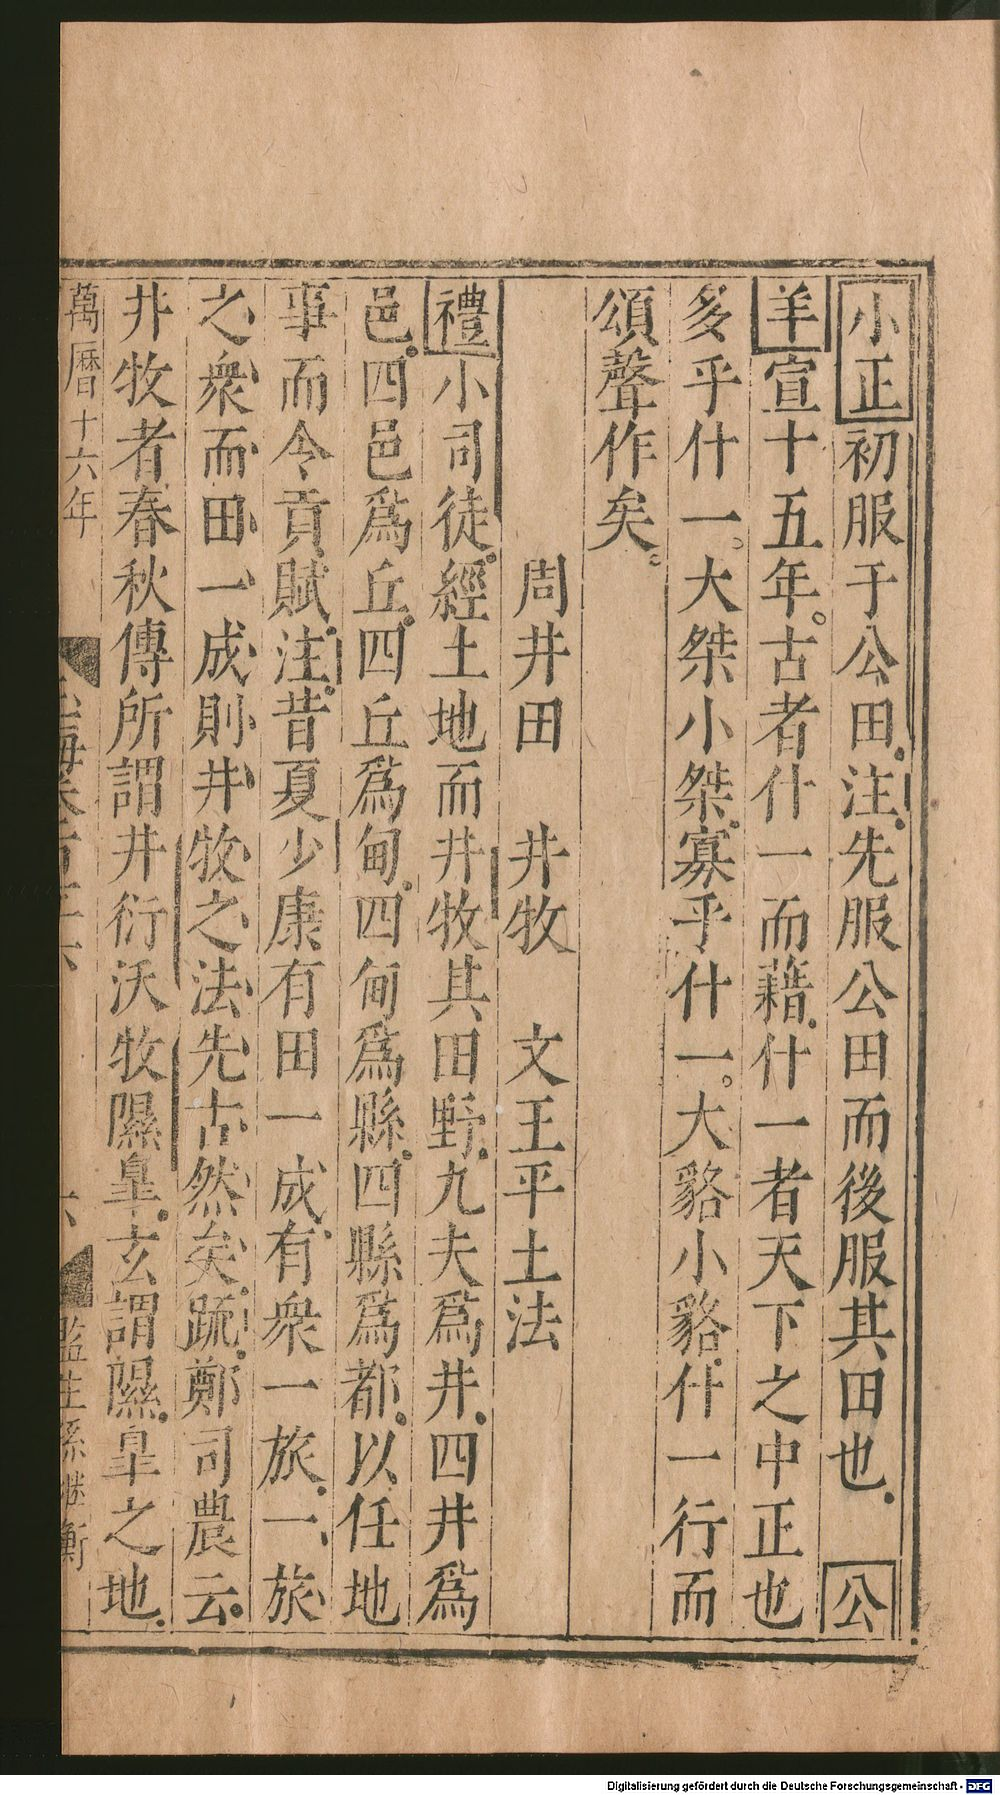 小正初服于公田注先服公田而後服其田也公
羊宣十五年古者什一而藉什一者天下之中正也
多乎什一大桀小桀寡乎什一大貉小貉什一行而
頌聲作矣
周井田 井牧 文王平土法
禮小司徒經土地而井牧其田野九夫爲井四井爲
邑四邑爲丘四丘爲甸四甸爲縣四縣爲都以任地
事而令貢賦注昔夏少康有田一成有衆一旅一旅
之衆而田一成則井牧之法先古然矣疏鄭司農云
井牧者春秋傳所謂井衍沃牧隰臯玄謂隰臯之地
萬曆十六年
六
監生孫継衡
Digitalisierung gefördert durch die Deutsche Forschungsgemeinschaft - DFG